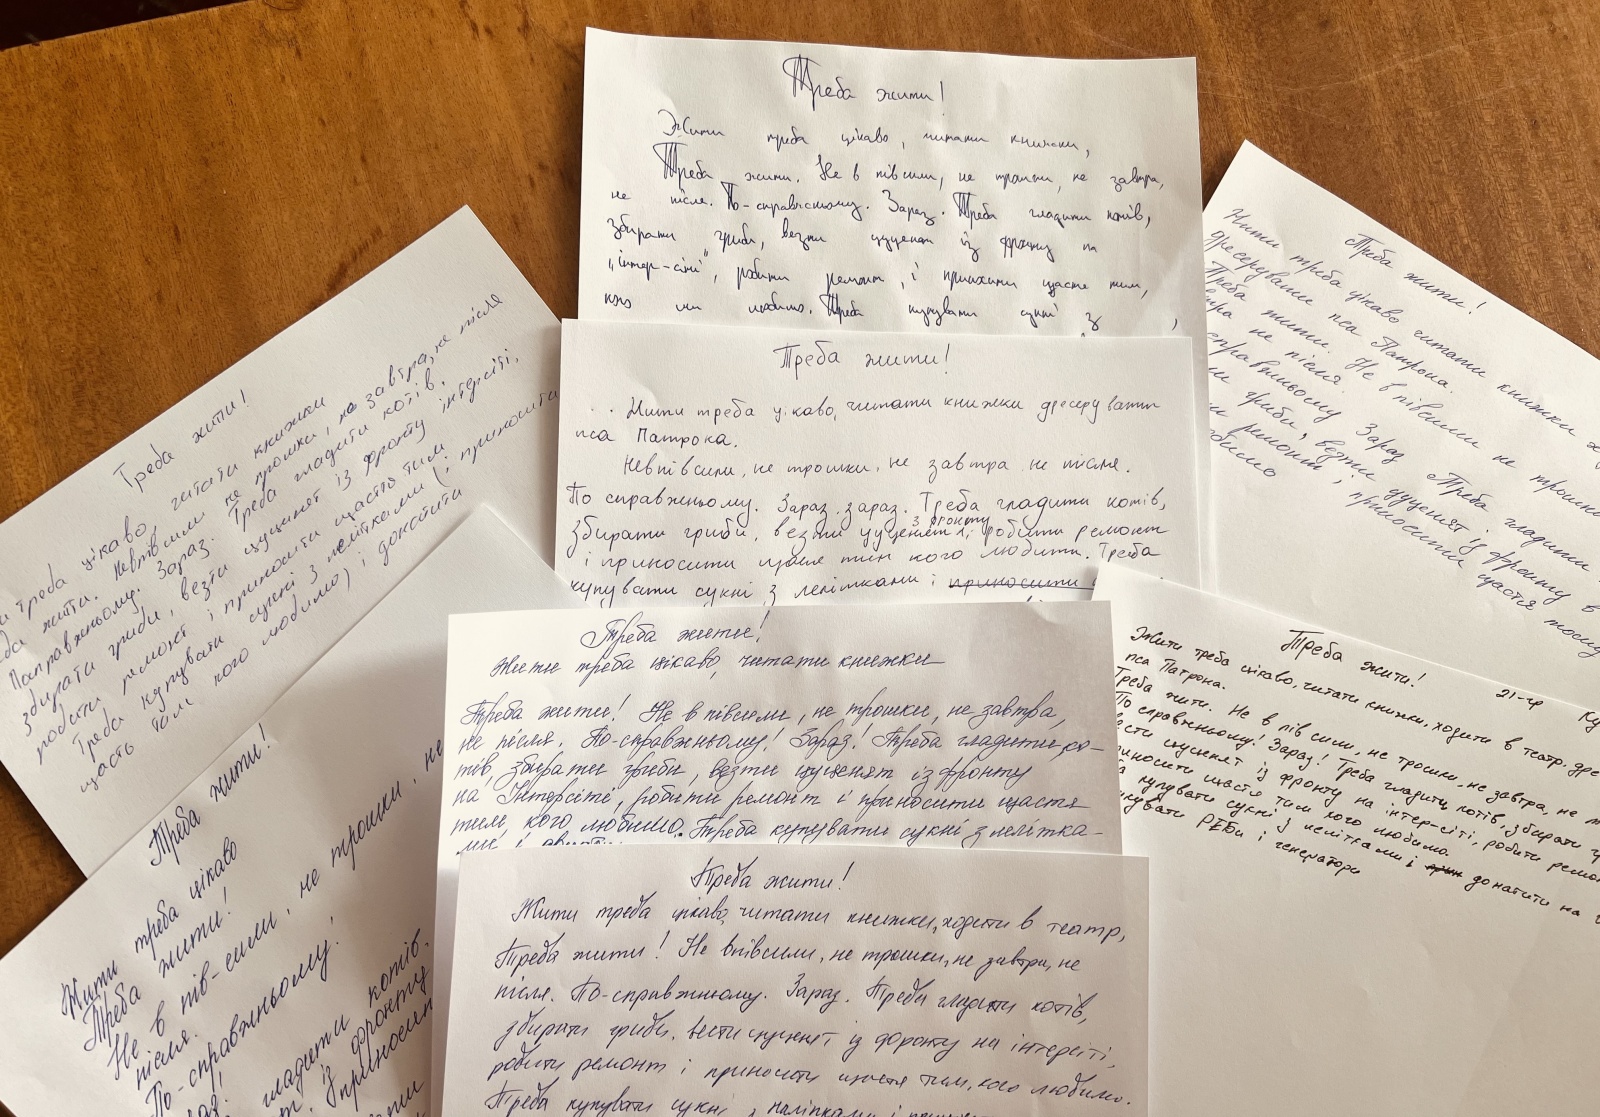 Треба жити!
Жити треба цікаво, читати книжки,
Треба жити. Не в півсили, не трошки, не завтра,
не після. По-справжньому. Зараз. Треба гладити котів,
збирати гриби, везти цуценят із фронту на
„інтер-сіті", робити ремонт, і приносити щастя тим,
кого ми любимо. Треба купувати сукні з
Треба жити!
Жити треба цікаво, читати книжки дресерувати
пса Патрона.
Невпівсили, не трошки, не завтра не після.
По справжньому. Зараз, зараз. Треба гладити котів,
з фронту
збирати гриби, везти цуценят і, робити ремонт
і приносити щастя тим кого любити. Треба
купувати сукні з лелітками і приносити
Треба жити!
Жити треба цікаво, читати книжки
Треба жити! Не в півсили, не трошки, не завтра,
не після. По-справжньому! Зараз! Треба гладити ко-
тів, збирати гриби, везти цуценят із фронту
на Інтерсіті, робити ремонт і приносити щастя
тим, кого любимо. Треба купувати сукні з лелітка-
ми і
Треба жити!
Жити треба цікаво, читати книжки, ходити в театр,
Треба жити! Не впівсили, не трошки, не завтра, не
після. По-справжньому. Зараз. Треба гладити котів,
збирати гриби. Вести цуценят із фронту на інтерсіті,
робити ремонт і приносити щастя тим, кого любимо.
Треба купувати сукні з наліпками і
Треба жити!
треба цікаво, читати книжки
жити. Невпівсили не трошки, не завтра, не після
Посправжньому. Зараз. Треба гладити котів.
збирати гриби, везти цуценят із фронту інтерсіті,
робити ремонт і приносити щастя тим
Треба купувати сукні з лелітками (і приносити
щасть тим кого любимо) і донатити
Треба жити!
Жити треба цікаво
Треба жити!
Не в пів-сили, не трошки, не
після.
По-справжньому!
гладити котів.
із фронту
приносит
Треба жити!
Жити треба цікаво читати книжки
дресерувати пса Патрона.
Треба жити. Не в півсили не трошки
не після.
справжньому Зараз Треба гладити
гриби, везти цуценят із фронту в
ремонт, приносити щастя
любимо
Треба жити! 21-гр
Жити треба цікаво, читати книжки, ходити в театр.
пса Патрона.
Треба жити. Не в пів сили, не трошки, не завтра, не
По справжньому! Зараз! Треба гладити котів, збирати
вести цуценят із фронту на інтер-сіті, робити
приносити щастя тим кого любимо.
купувати сукні з лелітками і донатити на
купувати РЕБи і генератори